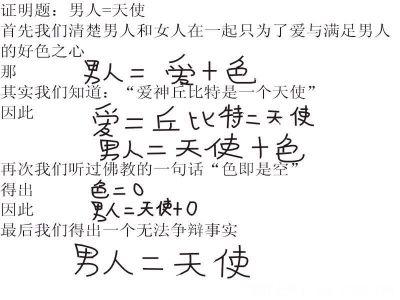 证明题：男人=天使
首先我们清楚男人和女人在一起只为了爱与满足男人
的好色之心
那 男人=爱+色
其实我们知道：“爱神丘比特是一个天使”
因此 爱=丘比特=天使
男人=天使+色
再次我们听过佛教的一句话“色即是空”
得出 色=0
因此 男人=天使+0
最后我们得出一个无法争辩事实
男人=天使